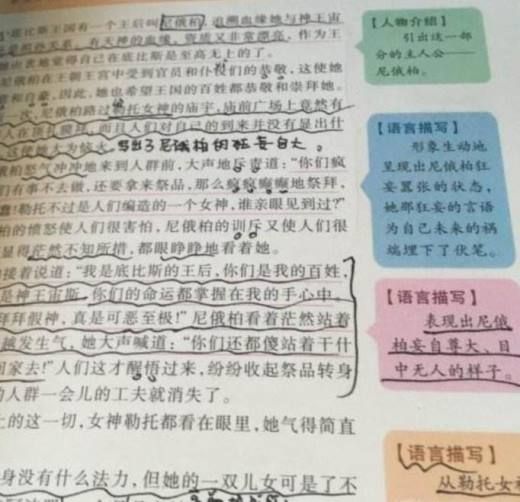 底比斯王国有一个王后叫尼俄柏,追溯血缘她与神王宙
有天神的血缘,资质又非常漂亮,作为
由衷地觉得自己在底比斯是至高无上的了。
尼俄柏在王朝王宫中受到官员和仆役们的恭敬,这使她
和自豪,因此,她也希望王国的百姓都恭敬和崇拜她。
尼俄柏路过勒托女神的庙宇,庙前广场上竟然有
人在顶礼膜拜,而且人们对自己的到来并没有显出什
写出了尼俄柏的狂妄自大。
柏怒气冲冲地来到人群前,大声地斥责道:“你们疯
们有事不去做,还要拿来祭品,那么疯疯癫癫地祭拜,
蠢!勒托不过是人们编造的一个女神,谁亲眼见到过?”
柏的愤怒使人们很害怕,尼俄柏的训斥又使人们很
显得茫然不知所措,都眼睁睁地看着她。
接着说道:“我是底比斯的王后,你们是我的百姓,
是神王宙斯,你们的命运都掌握在我的手心中。
拜拜假神,真是可恶至极!”尼俄柏看着茫然站着
越发生气,她大声喊道:“你们还都傻站着干什
回家去!”人们这才醒悟过来,纷纷收起祭品转身
的人群一会儿的工夫就消失了。
上的这一切,女神勒托都看在眼里,她气得简直
身没有什么法力,但她的一双儿女可是了不
【人物介绍】
引出这一部
分的主人公——
尼俄柏。
【语言描写】
形象生动地
呈现出尼俄柏狂
妄嚣张的状态,
她那狂妄的言语
为自己未来的祸
端埋下了伏笔。
【语言描写】
表现出尼俄
柏妄自尊大、目
中无人的样子。
【语言描写】
从勒托女